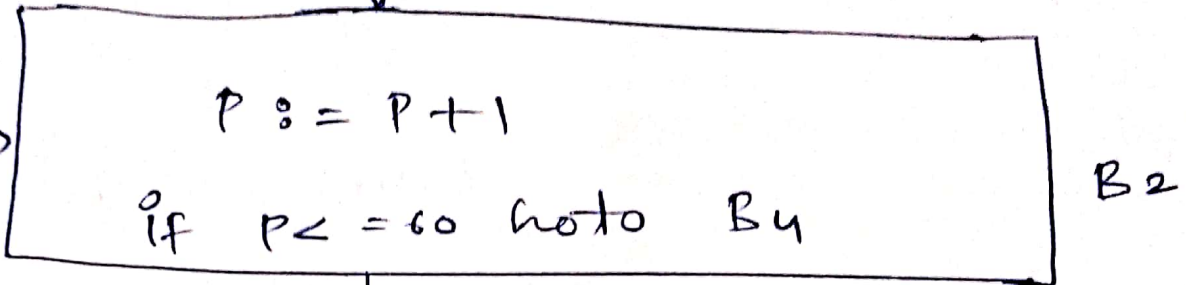 P := P+1
if P< = 60 Goto B4
B2